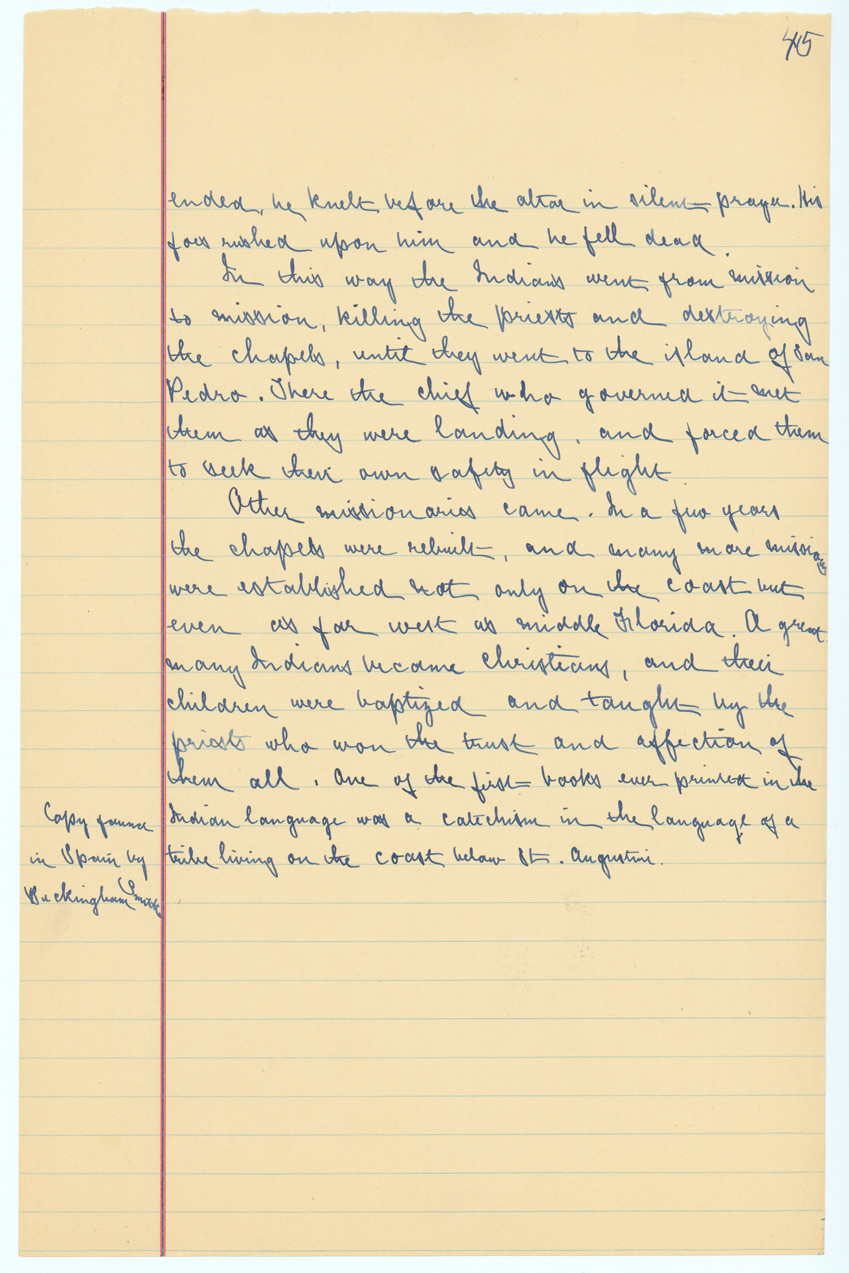 45
ended, he knelt before the altar in silent prayer. His
foes rushed upon him and he fell dead.
In this way the Indians went from mission
to mission, killing the priests and destroying
the chapels, until they went to the island of San
Pedro. There the chief who governed it met
them as they were landing, and forced them
to seek their own safety in flight.
Other missionaries came. In a few years
the chapels were rebuilt, and many more missions
were established not only on the coast but
even as far west as middle Florida. A great
many Indians became Christians, and their
children were baptized and taught by the
priests who won the trust and affection of
them all. One of the first books ever printed in the
Indian language was a catechism in the language of a
tribe living on the coast below St. Augustine.
Copy found
in Spain by
Buckingham Smith